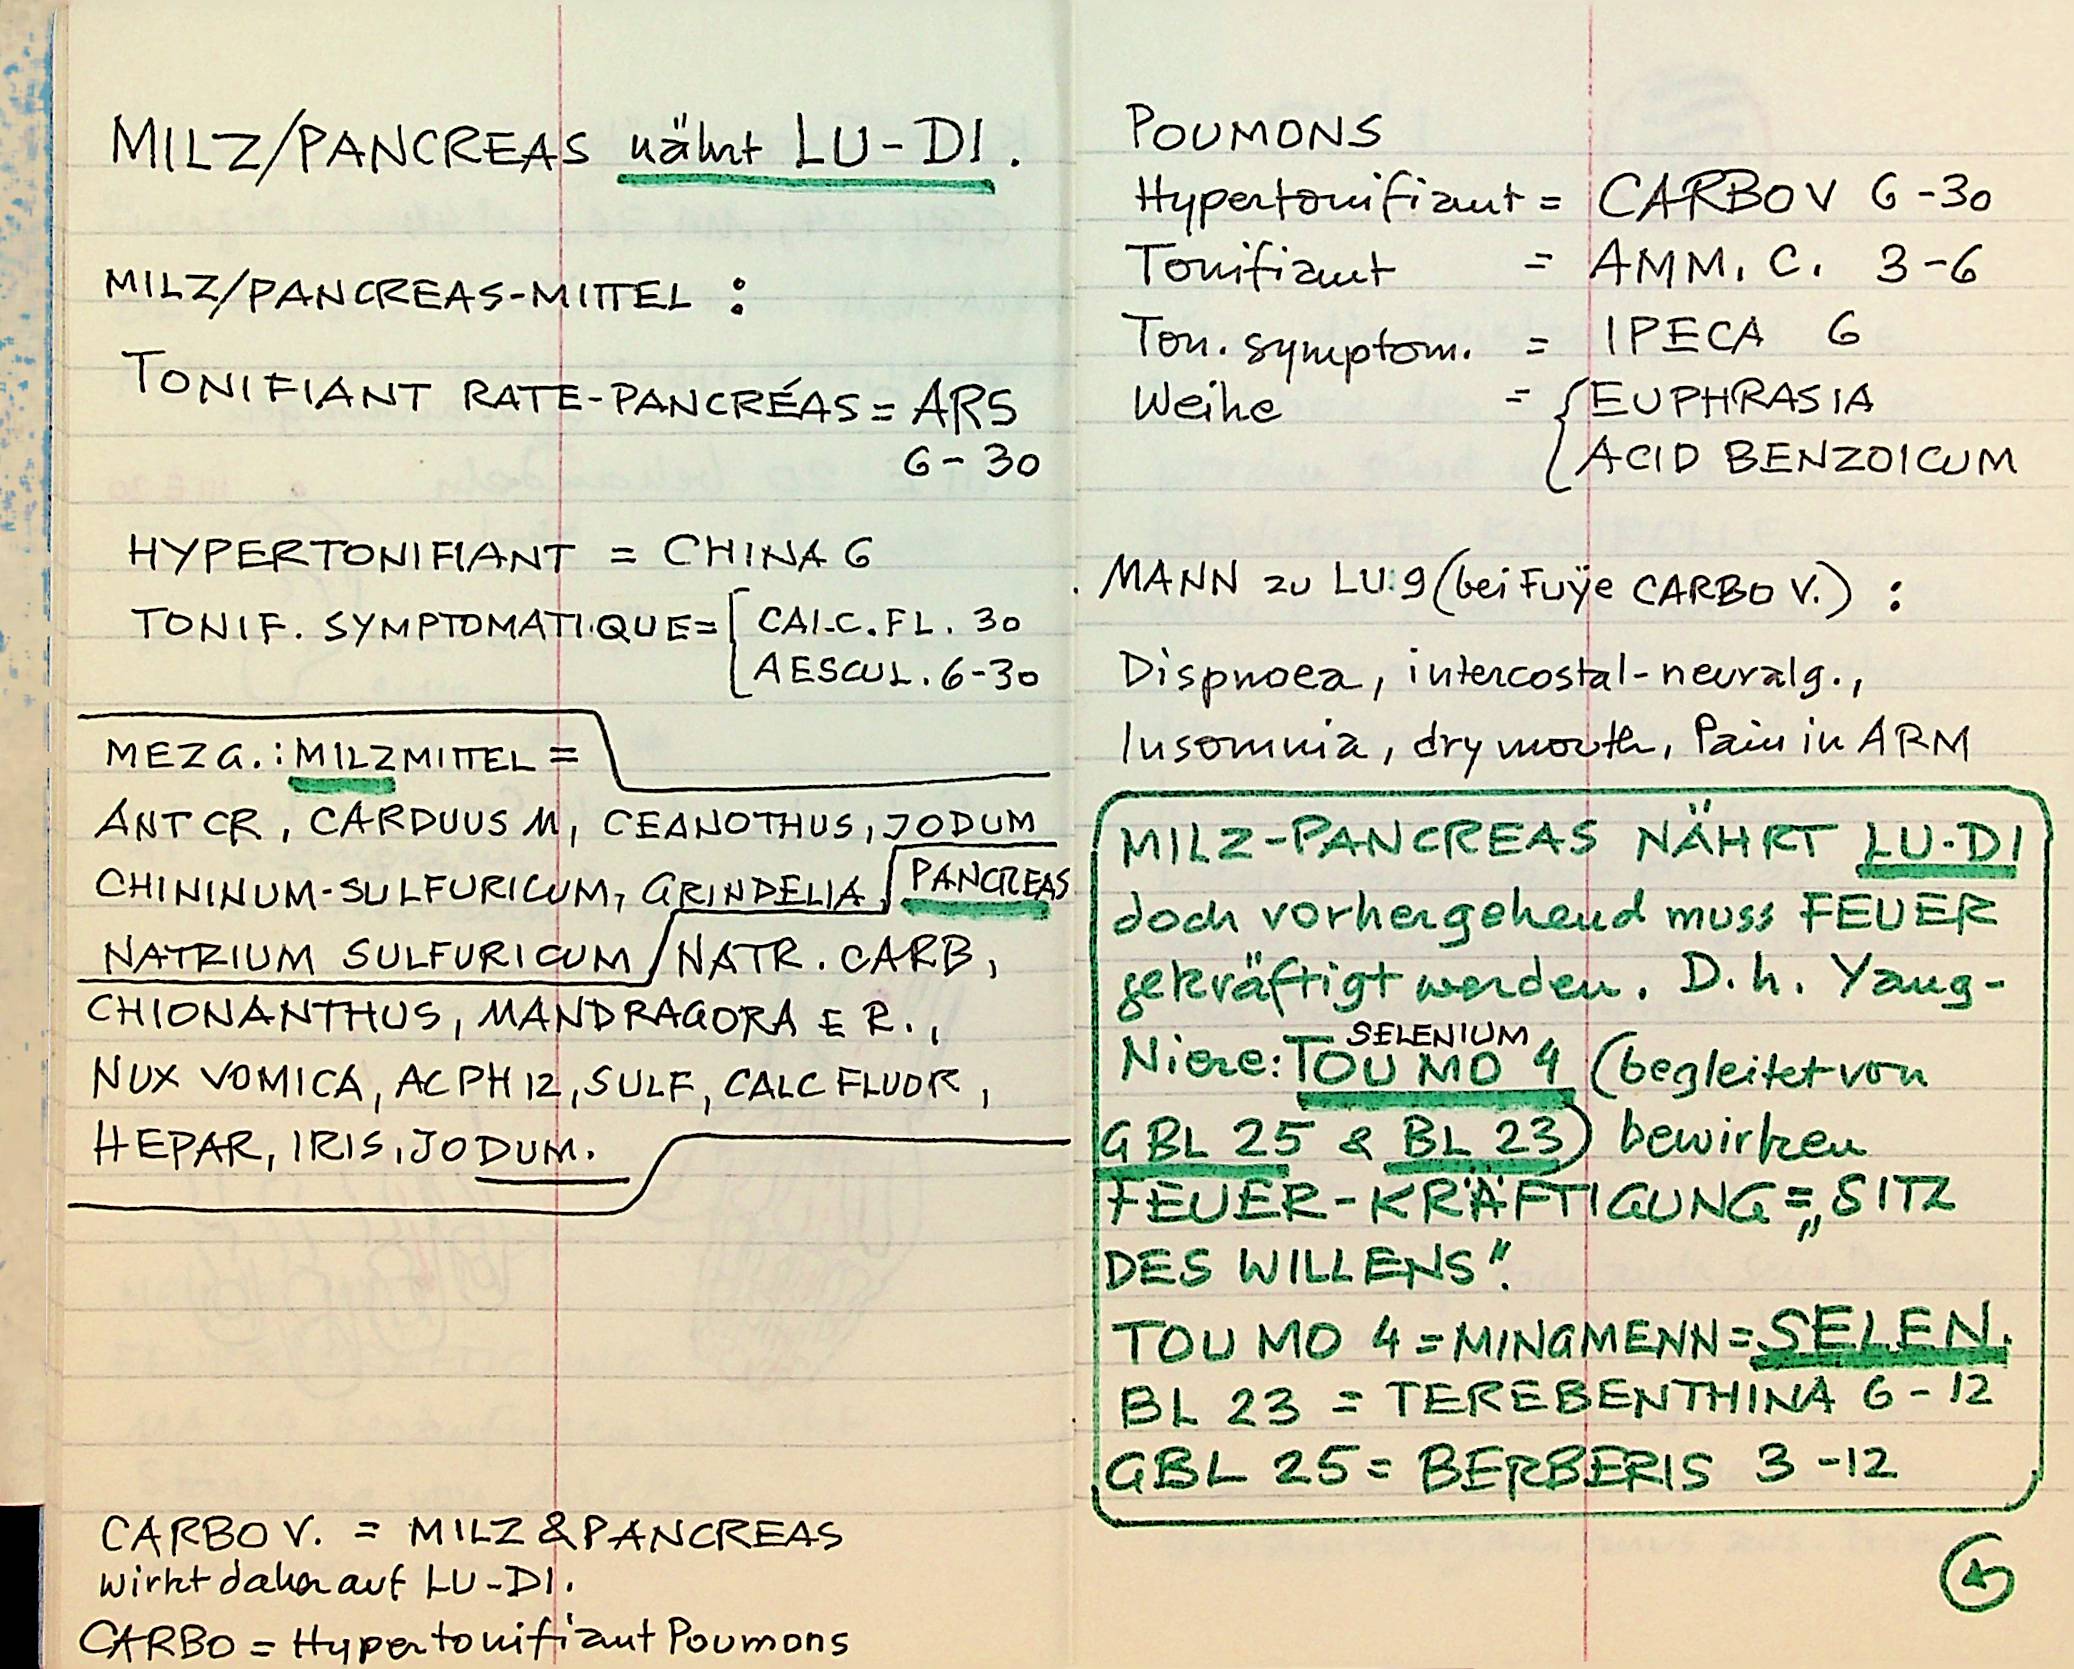 MILZ/PANCREAS nährt LU-DI.
MILZ/PANCREAS-MITTEL:
TONIFIANT RATE-PANCRÉAS = ARS
6-30
HYPERTONIFIANT = CHINA 6
TONIF. SYMPTOMATIQUE = [ CALC. FL. 30
AESCUL. 6-30
MEZG.: MILZMITTEL =
ANT CR, CARDUUS M, CEANOTHUS, JODUM
CHININUM-SULFURICUM, GRINDELIA / PANCREAS
NATRIUM SULFURICUM / NATR. CARB,
CHIONANTHUS, MANDRAGORA E R.,
NUX VOMICA, AC PH 12, SULF, CALC FLUOR,
HEPAR, IRIS, JODUM.
CARBO V. = MILZ & PANCREAS
wirkt daher auf LU-DI.
CARBO = Hypertonifiant Poumons
POUMONS
Hypertonifiant = CARBO V 6-30
Tonifiant = AMM. C. 3-6
Ton. symptom. = IPECA 6
Weihe = { EUPHRASIA
ACID BENZOICUM
MANN zu LU.9 (bei Fuÿe CARBO V.):
Dispnoea, intercostal-neuralg.,
Insomnia, dry mouth, Pain in ARM
MILZ-PANCREAS NÄHRT LU-DI
doch vorhergehend muss FEUER
gekräftigt werden. D.h. Yang-
SELENIUM
Niere: TOU MO 4 (begleitet von
GBL 25 & BL 23) bewirken
FEUER-KRÄFTIGUNG = „SITZ
DES WILLENS".
TOU MO 4 = MINGMENN = SELEN.
BL 23 = TEREBENTHINA 6-12
GBL 25 = BERBERIS 3-12